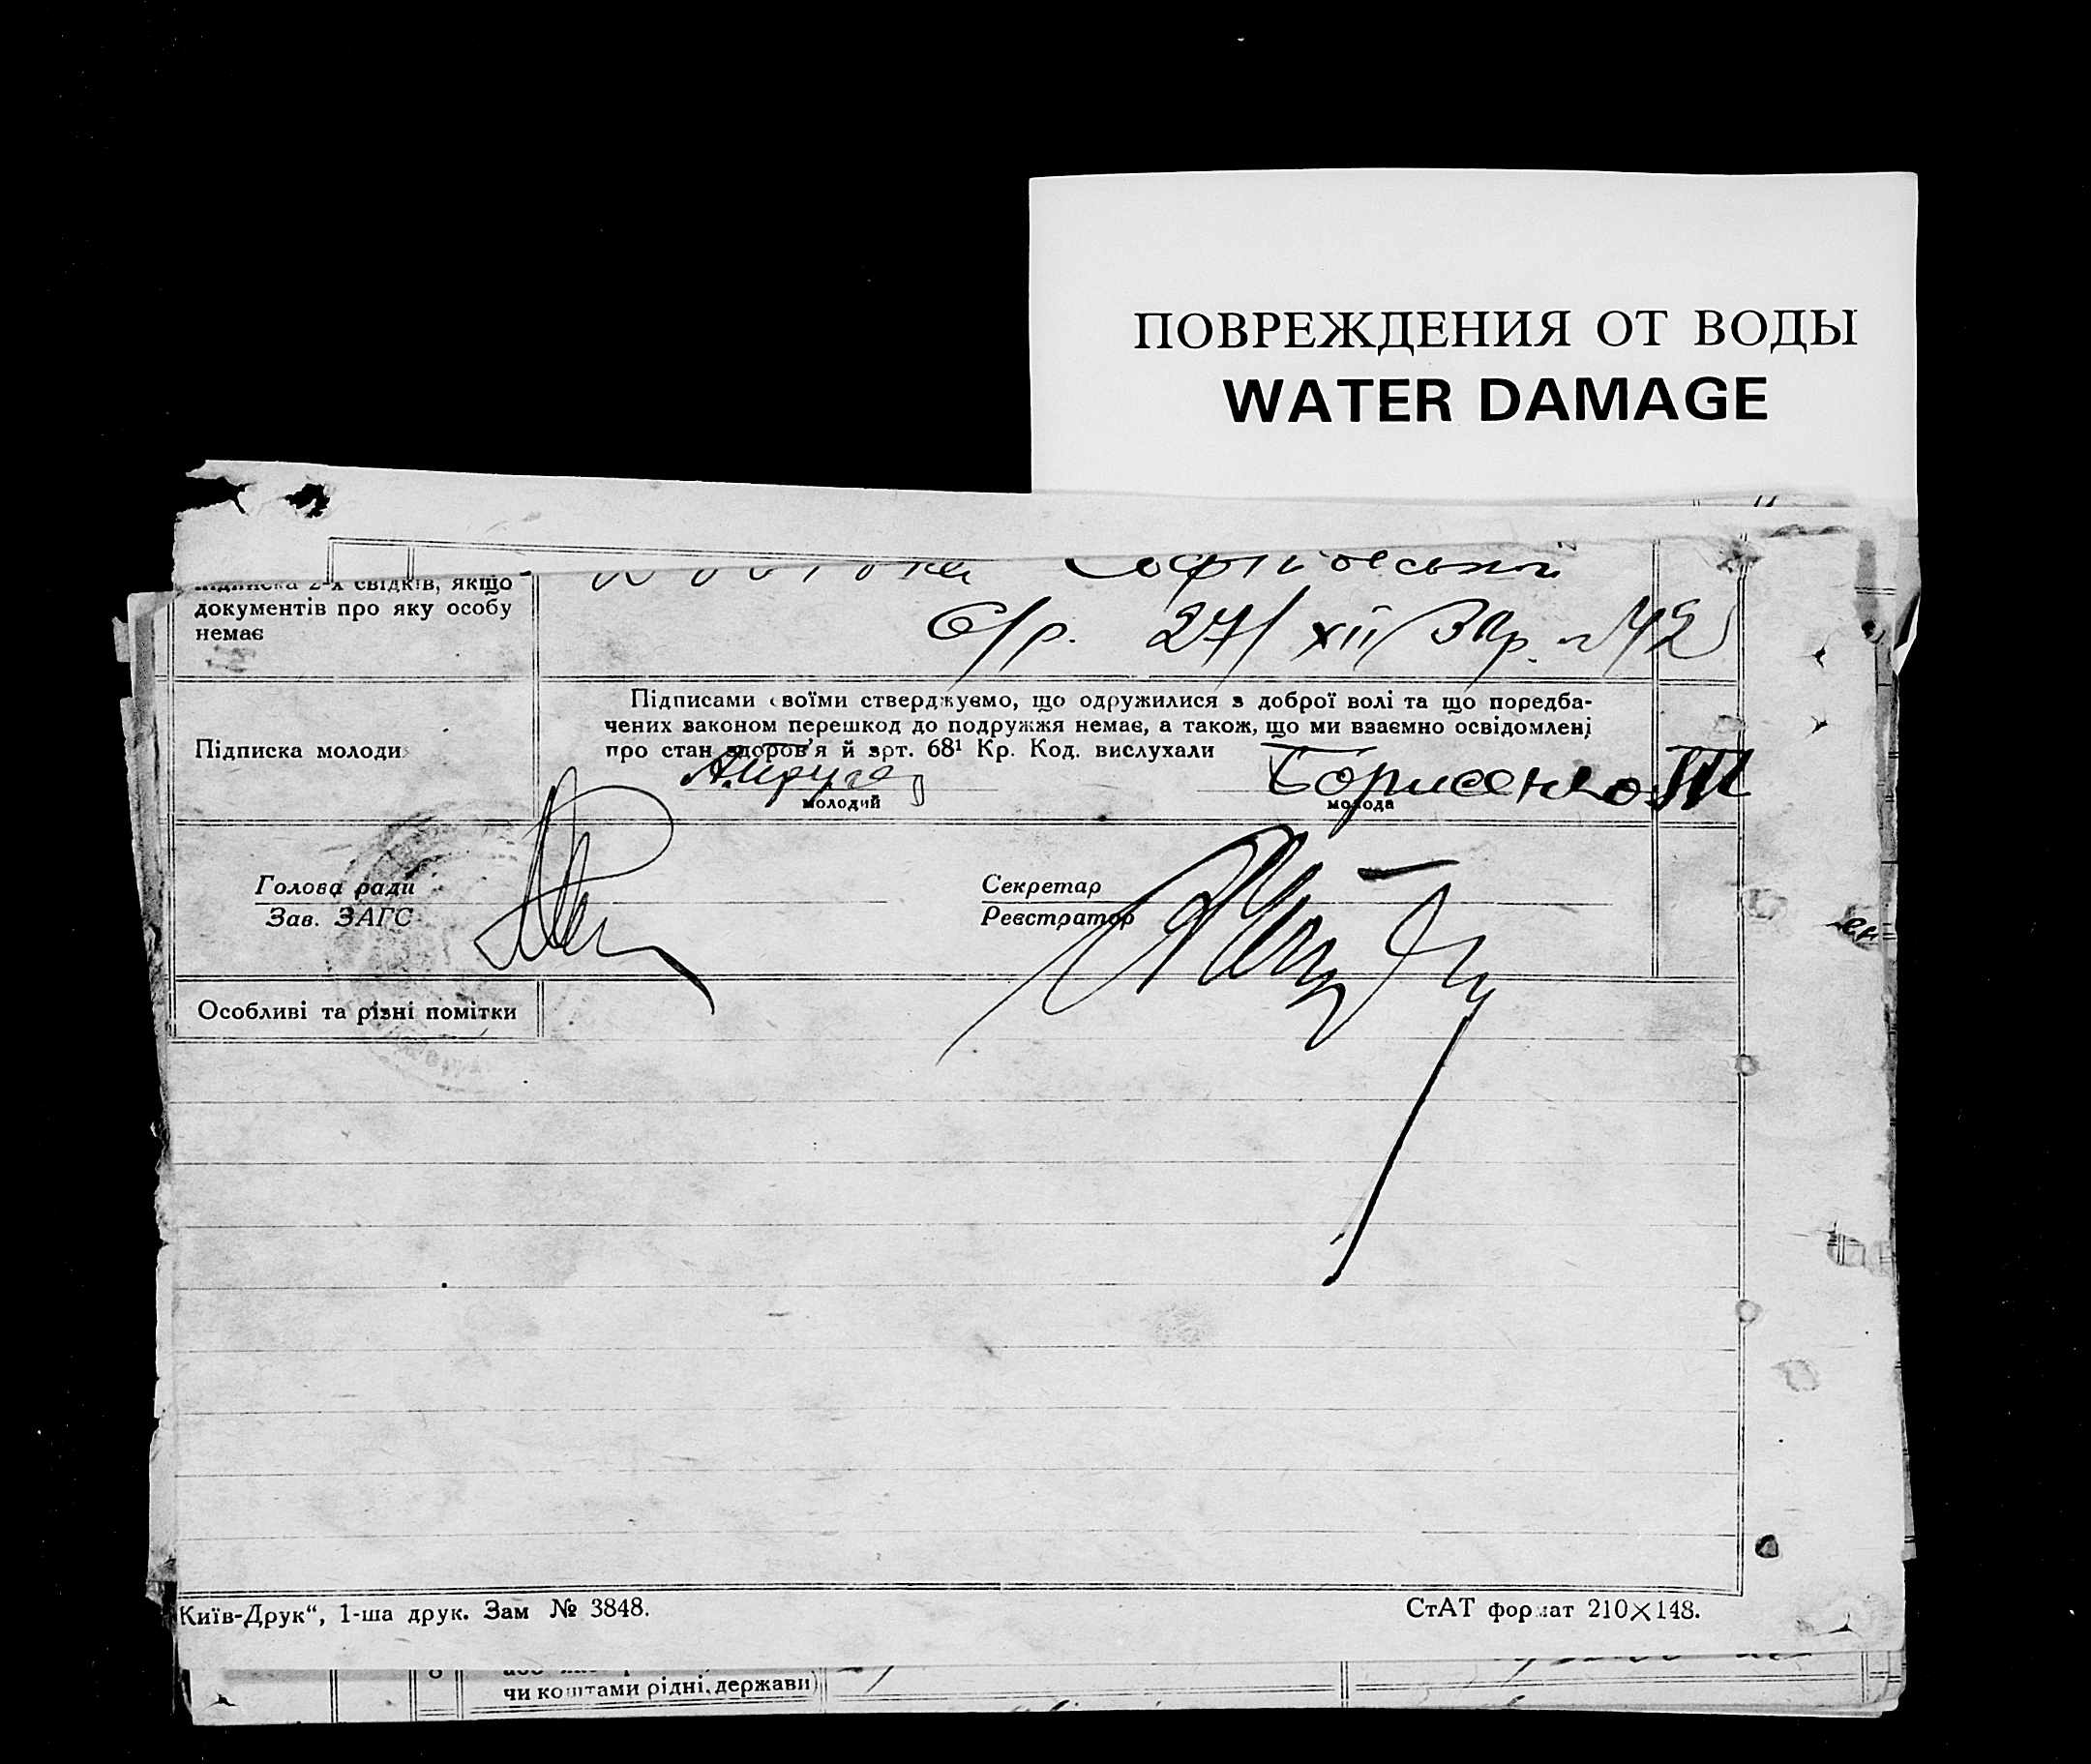 ПОВРЕЖДЕНИЯ ОТ ВОДЫ
WATER DAMAGE
2-х свідків, якщо
документів про яку особу
немає
С/р. 27/XII/30р. №42
Підписами своїми стверджуємо, що одружилися з доброї волі та що поредба-
чених законом перешкод до подружжя немає, а також, що ми взаємно освідомлені
Підписка молоди
про стан здоров'я й арт. 68¹ Кр. Код. вислухали
Борисенко
молодий молода
Голова ради
Зав. ЗАГС
Секретар
Реєстратор
Особливі та різні помітки
Київ-Друк“, 1-ша друк. Зам № 3848.
СтАТ формат 210×148.
чи коштами рідні, держави)